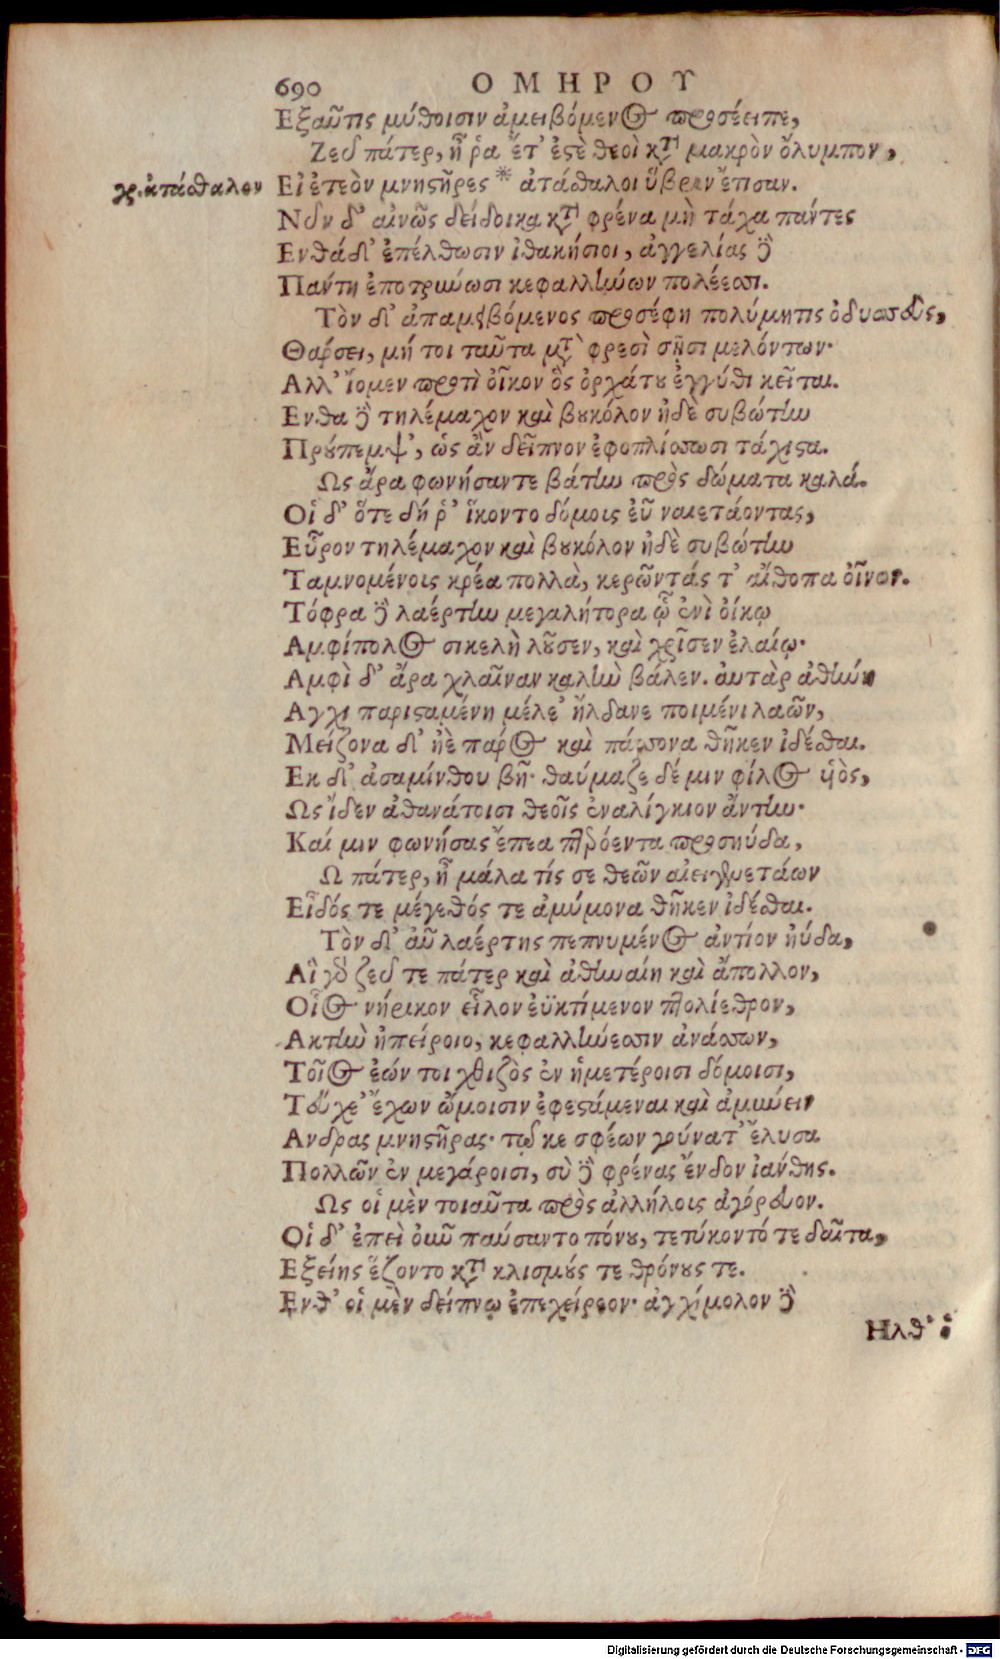 690 ΟΜΗΡΟΥ
Εξαῦτις μύθοισιν ἀμειβόμενος προσέειπε,
Ζεῦ πάτερ, ἦ ῥα ἔτ' ἐστὲ θεοὶ κατὰ μακρὸν ὄλυμπον,
γρ. ἀτάσθαλον Εἰ ἐτεὸν μνηστῆρες * ἀτάσθαλοι ὕβριν ἔτισαν.
Νῦν δ' αἰνῶς δείδοικα κατὰ φρένα μὴ τάχα πάντες
Ενθάδ' ἐπέλθωσιν ἰθακήσιοι, ἀγγελίας δὲ
Πάντη ἐποτρύνωσι κεφαλλήνων πολέεσσι.
Τὸν δ' ἀπαμειβόμενος προσέφη πολύμητις ὀδυσσεὺς,
Θάρσει, μή τοι ταῦτα μετὰ φρεσὶ σῇσι μελόντων·
Αλλ' ἴομεν προτὶ οἶκον ὃς ὀρχάτου ἐγγύθι κεῖται.
Ενθα δὲ τηλέμαχον καὶ βουκόλον ἠδὲ συβώτην
Προύπεμψ', ὡς ἂν δεῖπνον ἐφοπλίσσωσι τάχιστα.
Ως ἄρα φωνήσαντε βάτην πρὸς δώματα καλά.
Οἱ δ' ὅτε δή ῥ' ἵκοντο δόμοις εὖ ναιετάοντας,
Εὗρον τηλέμαχον καὶ βουκόλον ἠδὲ συβώτην
Ταμνομένοις κρέα πολλὰ, κερῶντάς τ' αἴθοπα οἶνον.
Τόφρα δὲ λαέρτην μεγαλήτορα ᾧ ἐνὶ οἴκῳ
Αμφίπολος σικελὴ λοῦσεν, καὶ χρῖσεν ἐλαίῳ·
Αμφὶ δ' ἄρα χλαῖναν καλὴν βάλεν. αὐτὰρ ἀθήνη
Αγχι παρισταμένη μέλε' ἤλδανε ποιμένι λαῶν,
Μείζονα δ' ἠὲ πάρος καὶ πάσσονα θῆκεν ἰδέσθαι.
Εκ δ' ἀσαμίνθου βῆ· θαύμαζε δέ μιν φίλος υἱὸς,
Ως ἴδεν ἀθανάτοισι θεοῖς ἐναλίγκιον ἄντην·
Καί μιν φωνήσας ἔπεα πτερόεντα προσηύδα,
Ω πάτερ, ἦ μάλα τίς σε θεῶν αἰειγενετάων
Εἶδός τε μέγεθός τε ἀμύμονα θῆκεν ἰδέσθαι.
Τὸν δ' αὖ λαέρτης πεπνυμένος ἀντίον ηὔδα,
Αἲ γὰρ ζεῦ τε πάτερ καὶ ἀθηναίη καὶ ἄπολλον,
Οἷος νήρικον εἷλον ἐϋκτίμενον πτολίεθρον,
Ακτὴν ἠπείροιο, κεφαλλήνεσσιν ἀνάσσων,
Τοῖος ἐών τοι χθιζὸς ἐν ἡμετέροισι δόμοισι,
Τεύχε' ἔχων ὤμοισιν ἐφεστάμεναι καὶ ἀμύνειν
Ανδρας μνηστῆρας· τῷ κε σφέων γούνατ' ἔλυσα
Πολλῶν ἐν μεγάροισι, σὺ δὲ φρένας ἔνδον ἰάνθης.
Ως οἱ μὲν τοιαῦτα πρὸς ἀλλήλοις ἀγόρευον.
Οἱ δ' ἐπεὶ οὖν παύσαντο πόνου, τετύκοντό τε δαῖτα,
Εξείης ἕζοντο κατὰ κλισμούς τε θρόνους τε.
Ενθ' οἱ μὲν δείπνῳ ἐπεχείρεον· ἀγχίμολον δὲ
Ηλθ' ὁ
Digitalisierung gefördert durch die Deutsche Forschungsgemeinschaft - DFG